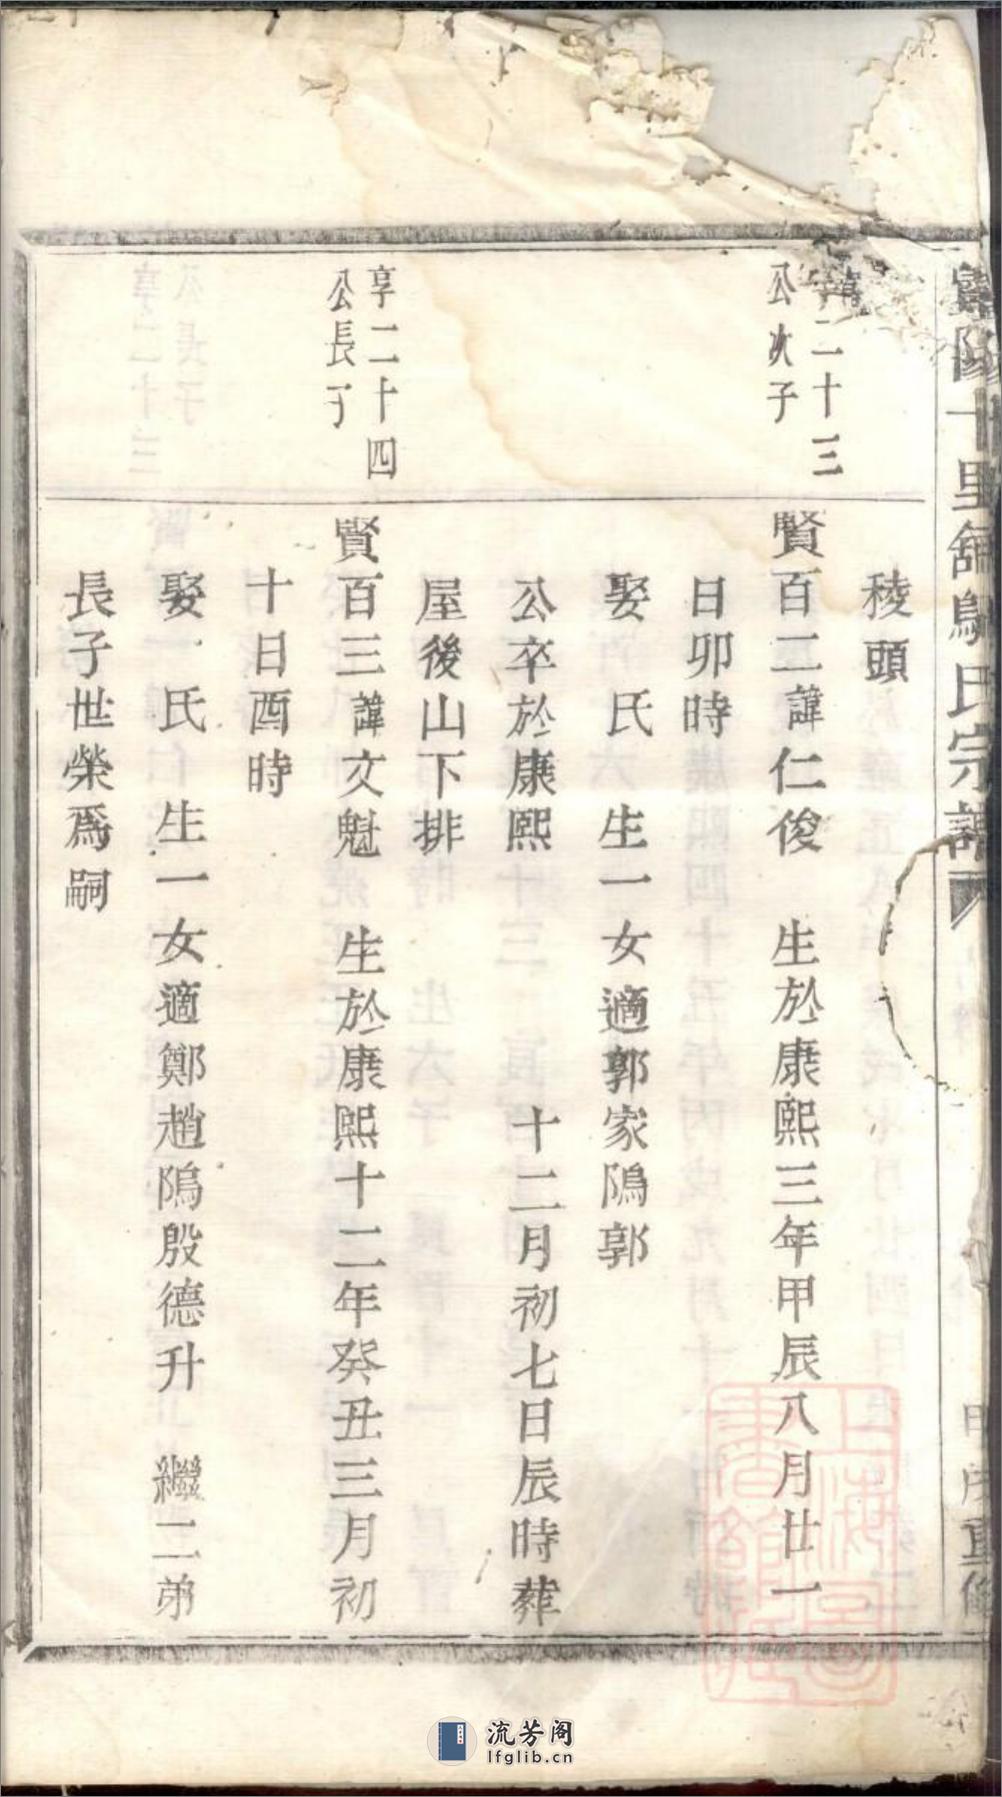 十里
氏宗譜
重修
稜頭
享二十三
公次子
賢百二諱仁俊 生於康熙三年甲辰八月廿一
日卯時
娶 氏 生一女適郭家隝郭
公卒於康熙 十二月初七日辰時葬
屋後山下排
享二十四
公長子
賢百三諱文魁 生於康熙十二年癸丑三月初
十日酉時
娶 氏 生一女適鄭趙隝殷德升 繼二弟
長子世榮爲嗣
上海圖書館藏
流芳阁
lfglib.cn